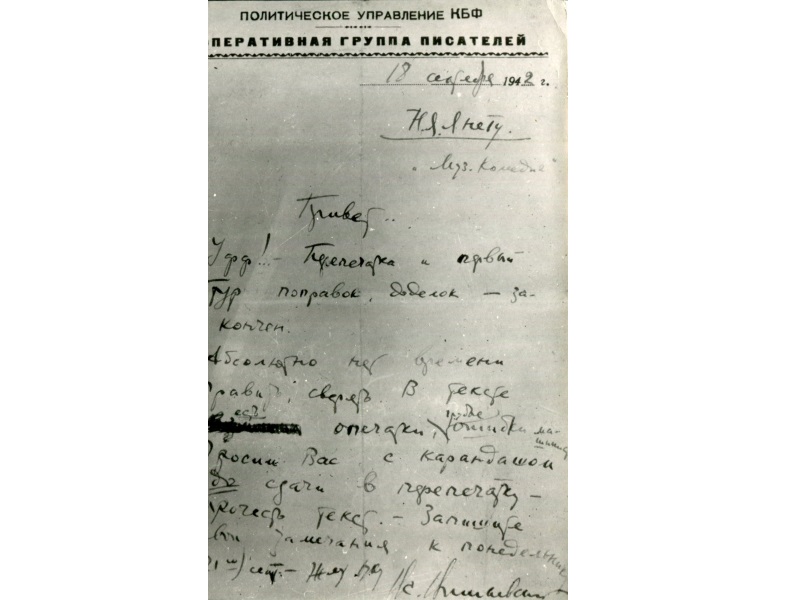 ПОЛИТИЧЕСКОЕ УПРАВЛЕНИЕ КБФ
ОПЕРАТИВНАЯ ГРУППА ПИСАТЕЛЕЙ
18 сентября 1942 г.
Н.Я. Янету.
"Муз. Комедия"
Привет..
Уфф! – Перепечатка и первый
тур поправок, доделок – за-
кончен.
Абсолютно нет времени
править, сверять. В тексте
есть опечатки, грубые ошибки ма-
шинис
Просим Вас с карандашом
до сдачи в перепечатку –
прочесть текст. – Запишите
замечания к понедельнику
сент – Жму руку Вс. Вишневский